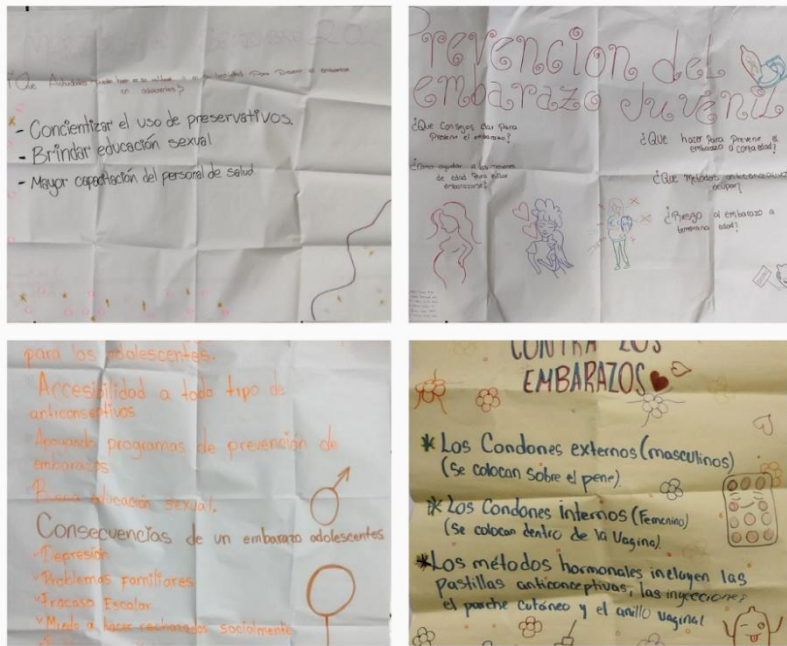 ¿Que Actividades
en adolecentes?
- Concientizar el uso de preservativos.
- Brindar educación sexual
- Mayor capacitación del personal de salud
Prevencion del
embarazo Juvenil
¿Que Consejos das para
Prevenir el embarazo?
¿Como ayudar a los menores
de edad para evitar
embarazarse?
¿Que hacer para Prevenir el
embarazo a corta edad?
¿Que Metodos anticonceptivos
ocupar?
¿Riesgo al embarazo a
temprana edad?
para los adolescentes.
Accesibilidad a todo tipo de
anticonseptivos
Apoyando programas de prevención de
embarazos
Buena educación sexual.
Consecuencias de un embarazo adolescentes
Depresión
Problemas Familiares
Fracaso Escolar
Miedo a hacer rechazados socialmente
CONTRA LOS
EMBARAZOS
* Los Condones externos (masculinos)
(se colocan sobre el pene)
* Los Condones internos (Femenino)
(se colocan dentro de la Vagina)
* Los métodos hormonales incluyen las
pastillas anticonceptivas, las inyecciones,
el parche cutóneo y el anillo vaginal